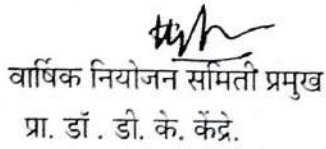 वार्षिक नियोजन समिती प्रमुख
प्रा. डॉ . डी. के. केंद्रे.